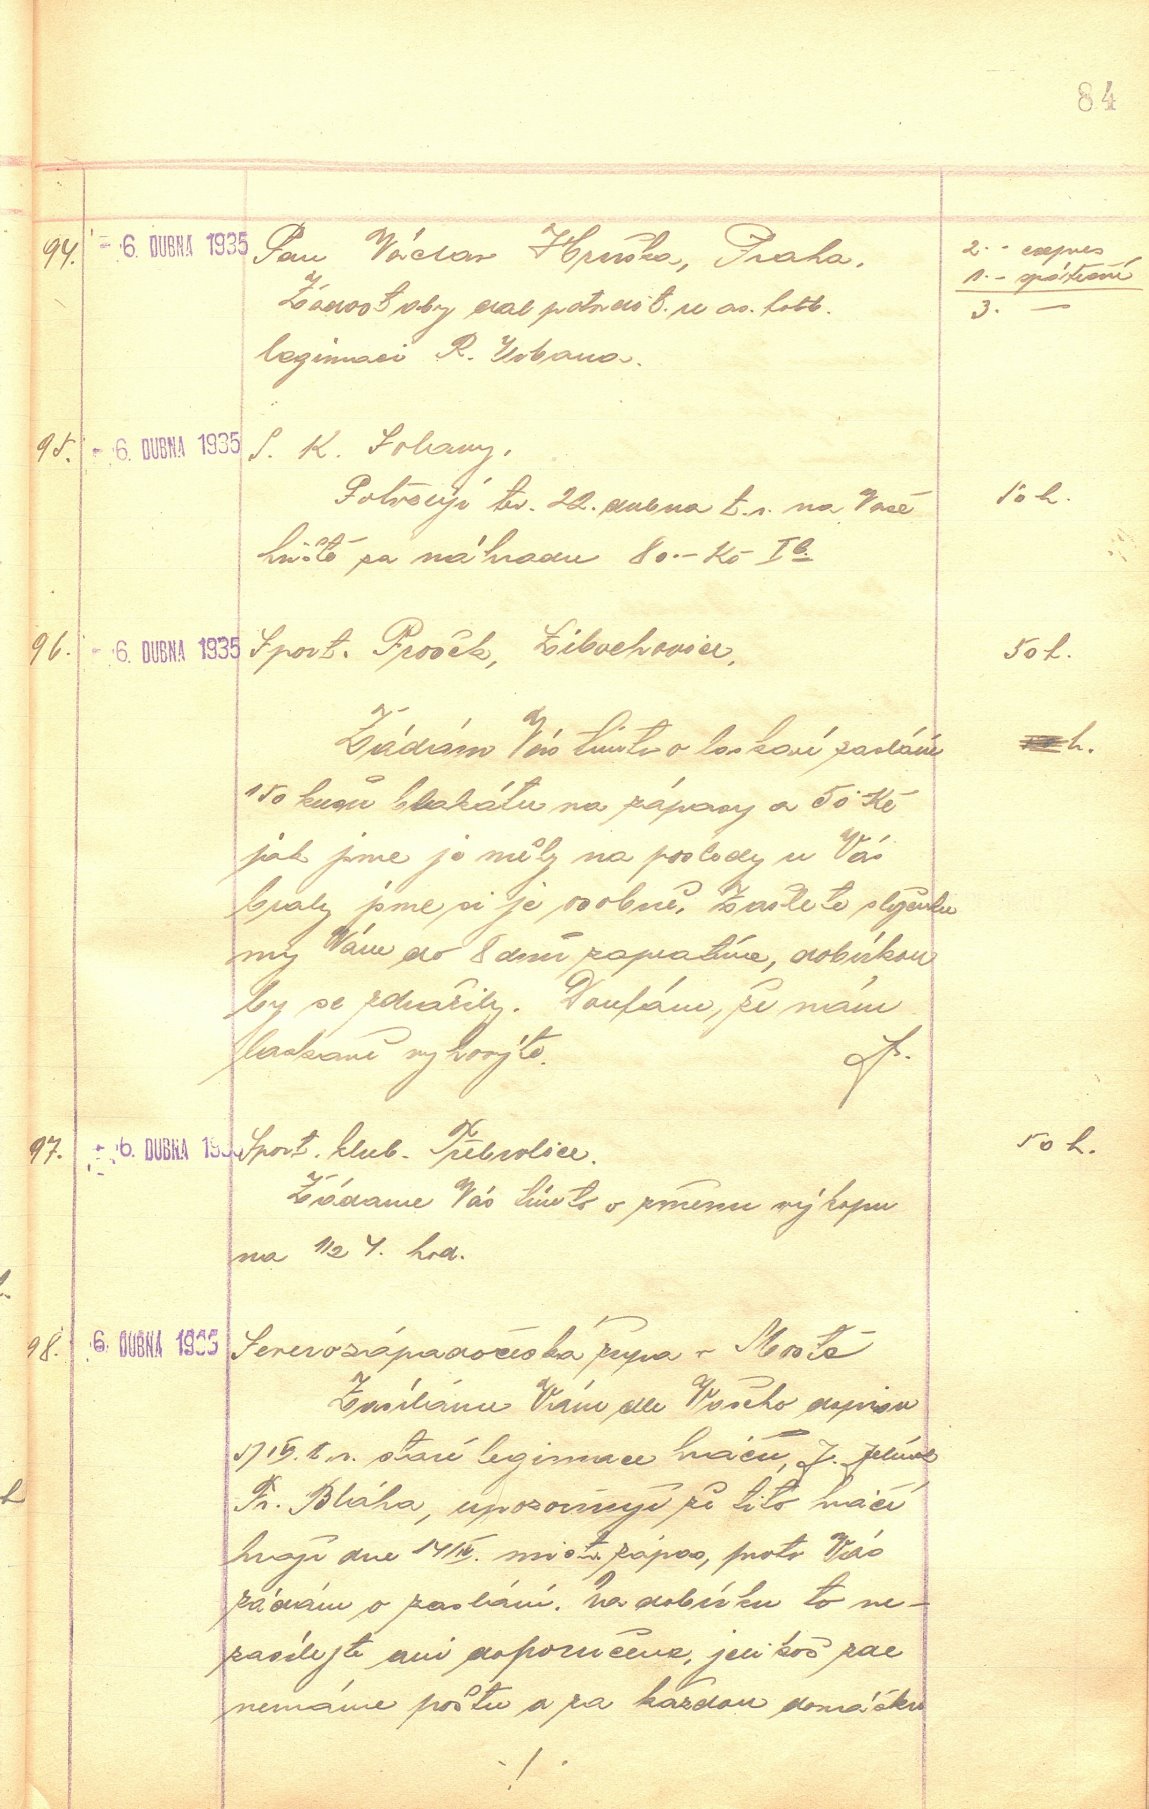 84
94. - 6. DUBNA 1935 Pan Václav Hruška, Praha. 2.- expres
1.- zpáteční
Žádost aby dal potvrdit u as. fotb. 3. —
legimaci R. Urbana.
95. - 6. DUBNA 1935 S. K. Lobany.
Potvrzuji ter. 22. dubna t.r. na Vaše 50 h.
hřiště za náhradu 80.- Kč I b.
96. - 6. DUBNA 1935 Sport. Prošek, Libochovice. 50 h.
Žádám Vás tímto o laskavé zaslání h.
150 kusů plakátu na zápasy a 50 Kč
jak jsme je měly na posledy u Vás
braly jsme si je osobně. Zašlete složenku
my Vám do 8 dnů zaplatíme, dobírkou
by se zdražily. Doufám, že nám
laskavě vyhovíte.
97. - 6. DUBNA 193 Sport. klub. Třebívlice. 50 h.
Žádáme Vás tímto o změnu výkopu
na 1/2 4. hod.
98. 6. DUBNA 1935 Severozápadočeská župa v Mostě
Zasíláme Vám dle Vašeho dopisu
5/IV. t.r. staré legimace hráčů, J. Jelínek
Fr. Bláha, upozorňuji že tito hráči
hrají dne 14/IV. mistr. zápas, proto Vás
žádám o zaslání. Na dobírku to ne-
zasílejte ani doporučeně, jelikož zde
nemáme poštu a za každou